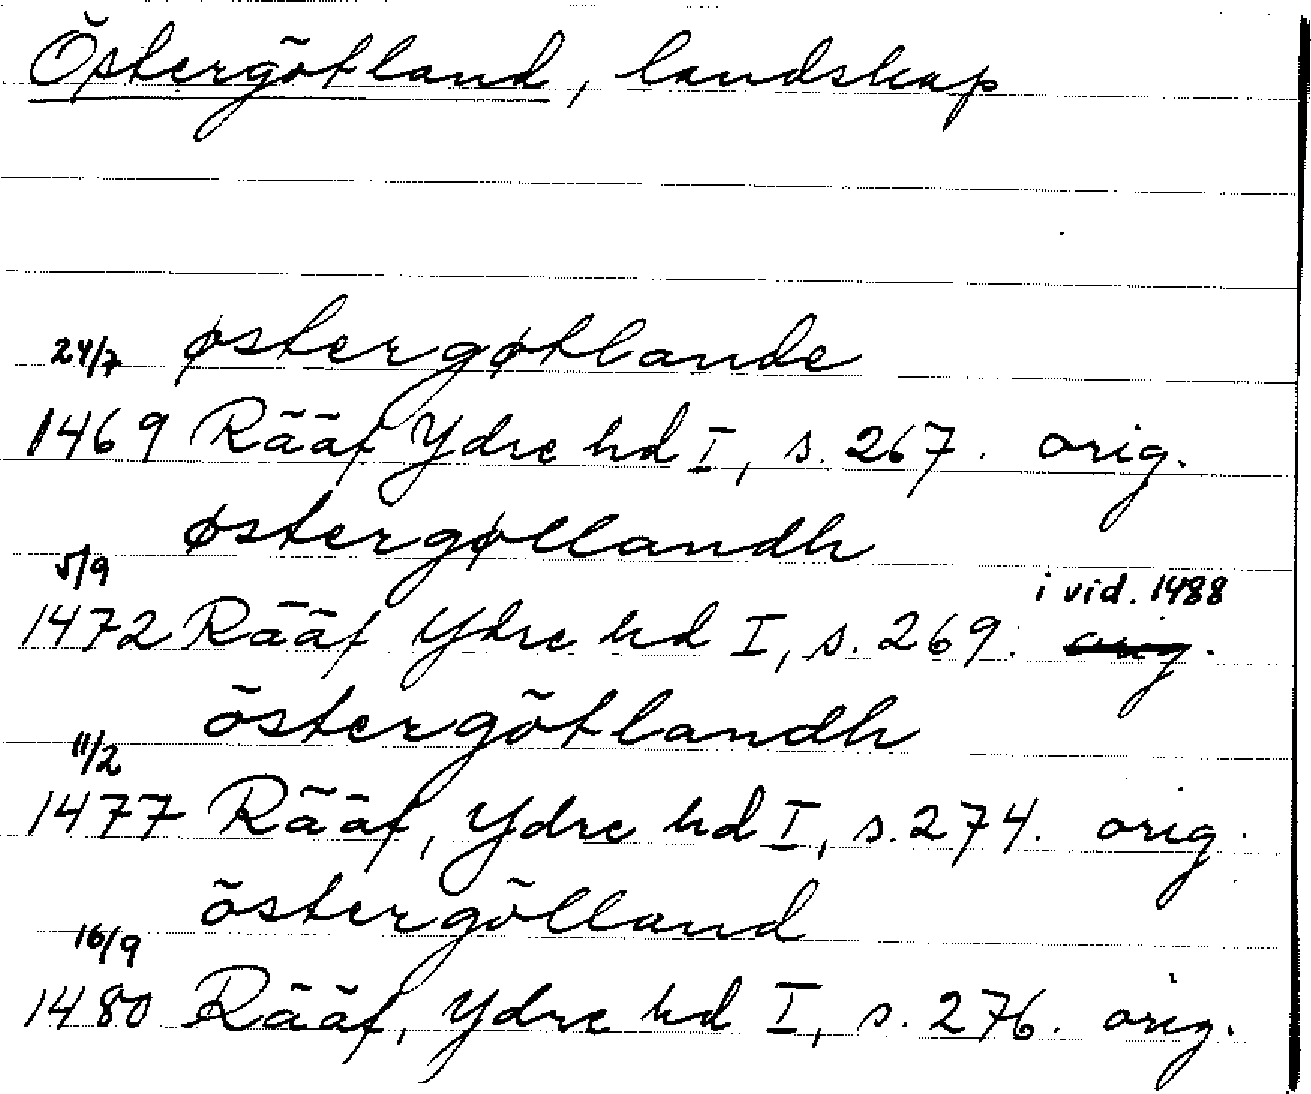 Östergötland, landskap
24/7 østergøtlande
1469 Rääf Ydre hd I, s. 267. orig.
østergøllandh
5/9 i vid. 1488
1472 Rääf Ydre hd I, s. 269. orig.
östergötlandh
11/2
1477 Rääf, Ydre hd I, s. 274. orig.
östergölland
16/9
1480 Rääf, Ydre hd I, s. 276. orig.